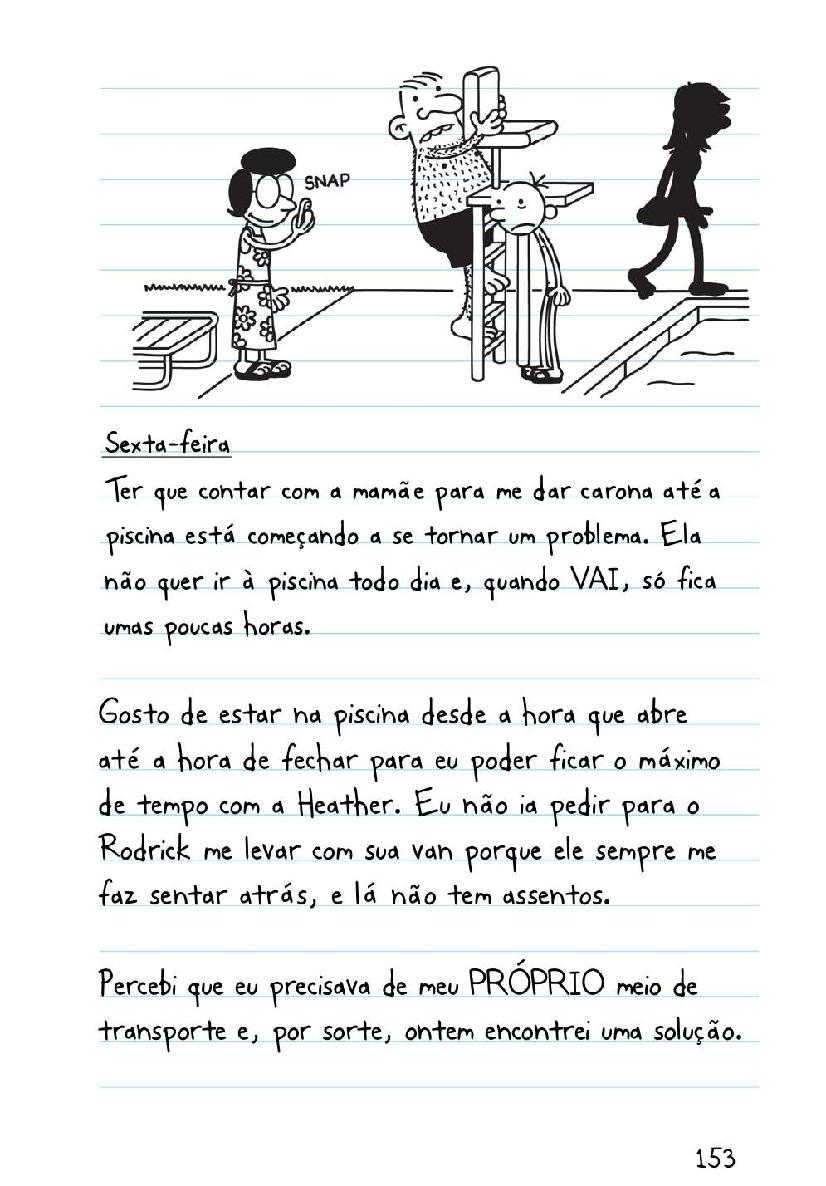 SNAP
Sexta-feira
Ter que contar com a mamãe para me dar carona até a
piscina está começando a se tornar um problema. Ela
não quer ir à piscina todo dia e, quando VAI, só fica
umas poucas horas.
Gosto de estar na piscina desde a hora que abre
até a hora de fechar para eu poder ficar o máximo
de tempo com a Heather. Eu não ia pedir para o
Rodrick me levar com sua van porque ele sempre me
faz sentar atrás, e lá não tem assentos.
Percebi que eu precisava de meu PRÓPRIO meio de
transporte e, por sorte, ontem encontrei uma solução.
153